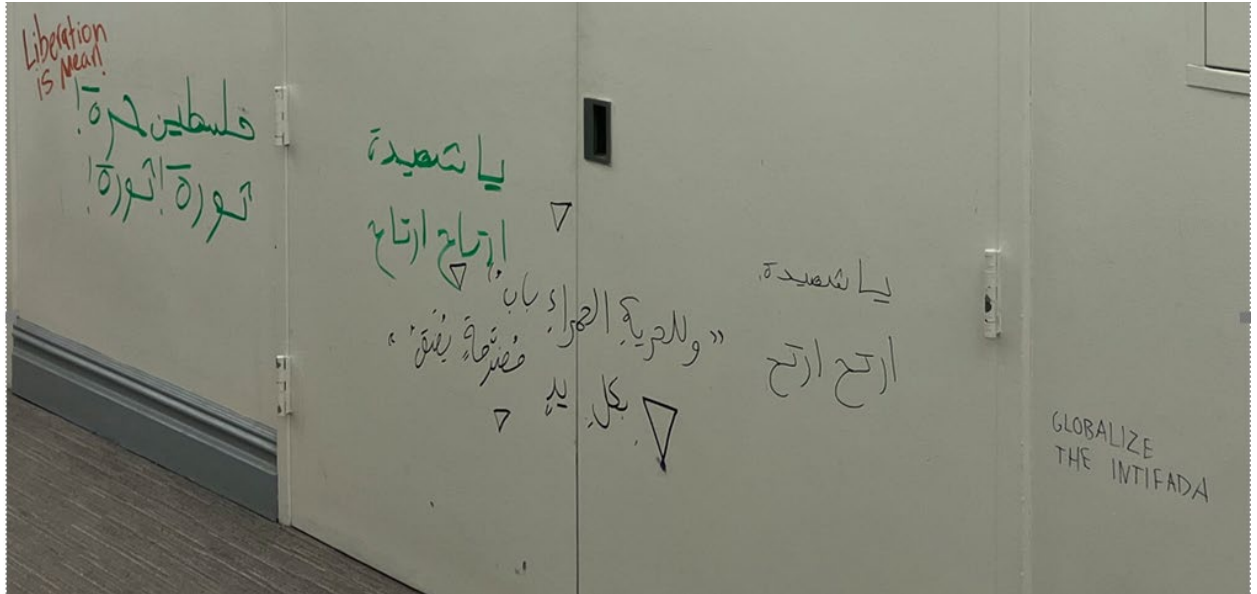 Liberation
is Mean!
فلسطين حرة!
ثورة! ثورة!
يا شهيدة
ارتاح ارتاح
"وللحرية الحمراءِ بابٌ
بكلِ يدٍ مُضرّجةٍ يُدَقُ"
يا شهيدة
ارتح ارتح
GLOBALIZE
THE INTIFADA